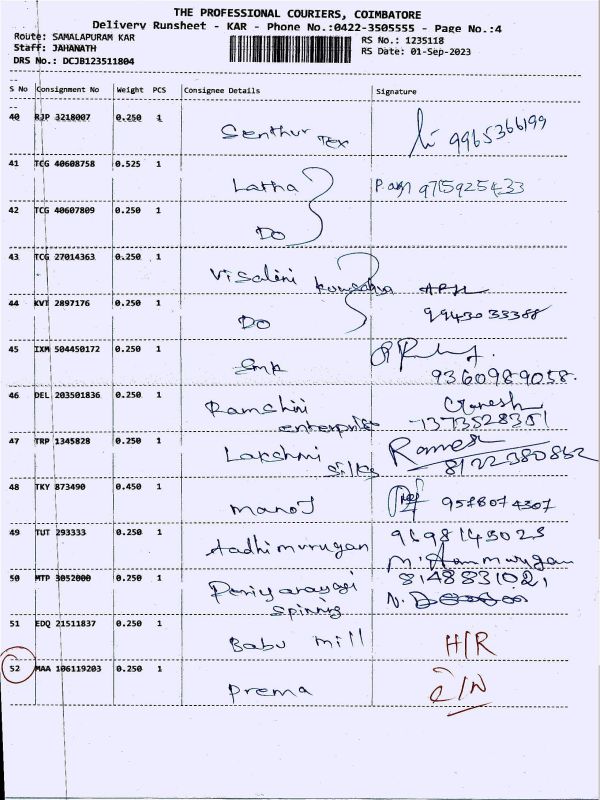 THE PROFESSIONAL COURIERS, COIMBATORE
Delivery Runsheet - KAR - Phone No.:0422-3505555 - Page No.:4
Route: SAMALAPURAM KAR RS No.: 1235118
Staff: JAHANATH RS Date: 01-Sep-2023
DRS No.: DCJB123511804
S No Consignment No Weight PCS Consignee Details Signature
40 RJP 3218007 0.250 1 Senthur Tex 9965366199
41 TCG 40608758 0.525 1 Latha 9715925433
42 TCG 40607809 0.250 1 Do
43 TCG 27014363 0.250 1 Visalini
44 KVT 2897176 0.250 1 Do 9943033388
45 IXM 504450172 0.250 1 9360989058.
46 DEL 203501836 0.250 1 Ramshini enterprise Ganesh 7373528351
47 TRP 1345828 0.250 1 Lakshmi silks Ramesh 8122380862
48 TKY 873490 0.450 1 Manoj 9578074307
49 TUT 293333 0.250 1 Aadhimurugan 9698143023
50 MTP 3052000 0.250 1 Periyanayagi Spining 8148831021
51 EDQ 21511837 0.250 1 Babu mill H/R
52 MAA 106119203 0.250 1 Prema